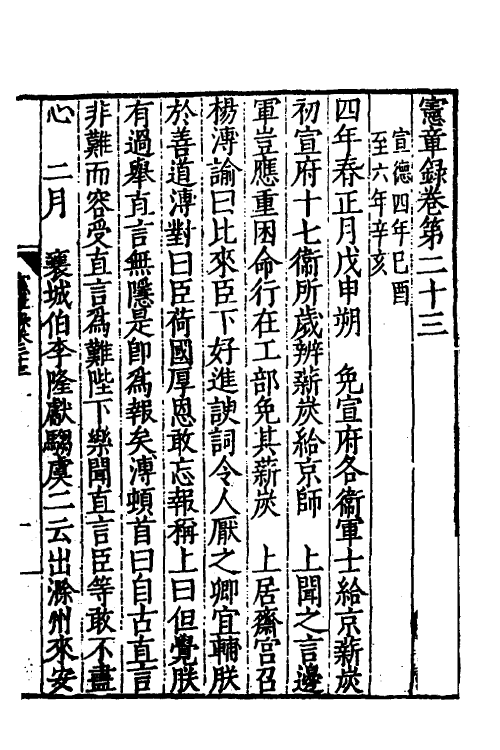 憲章録卷第二十三
宣德四年已酉
至六年辛亥
四年春正月戊申朔　免宣府各衞軍士給京薪炭
初宣府十七衞所歲辨薪炭給京師　上聞之言邊
軍豈應重困命行在工部免其薪炭　上居齋宫召
楊溥諭曰比來臣下好進諛詞令人厭之卿宜輔朕
於善道溥對曰臣荷國厚恩敢忘報稱上曰但覺朕
有過舉直言無隱是卽爲報矣溥頓首曰自古直言
非難而容受直言爲難陛下樂聞直言臣等敢不盡
心　二月　襄城伯李隆獻騶虞二云出滁州來安